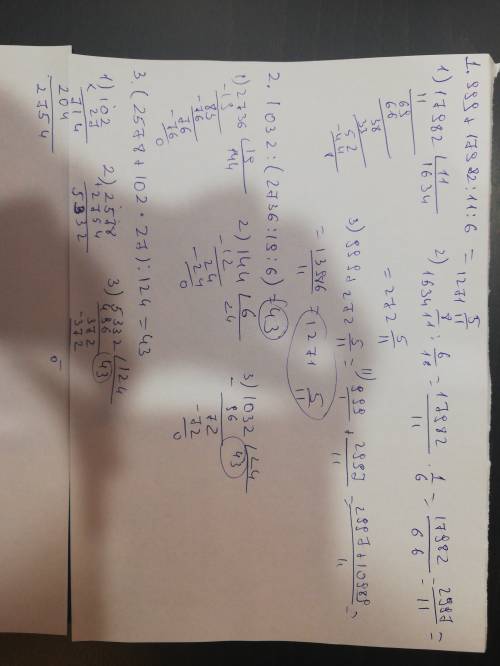 1. 999 + 17982 : 11 : 6 = 1271 5/11
1) 17982 | 11
11 1634
69
66
38
33
52
-44
8
2) 1634 8/11 : 6/1 = 17982/11 · 1/6 = 17982/66 = 2997/11 =
= 272 5/11
3) 999 + 272 5/11 = 999/1 + 2997/11 = 2997 + 10989/11 =
= 13986/11 = 1271 5/11
2. 1032 : (2736 : 19 : 6) = 43
1) 2736 | 19
-19 144
83
-76
76
-76
0
2) 144 | 6
-12 24
24
-24
0
3) 1032 | 24
- 96 43
72
-72
0
3. (2578 + 102 · 27) : 124 = 43
1) 102
× 27
714
204
2754
2) 2578
2754
5332
3) 5332 | 124
496 43
372
-372
0